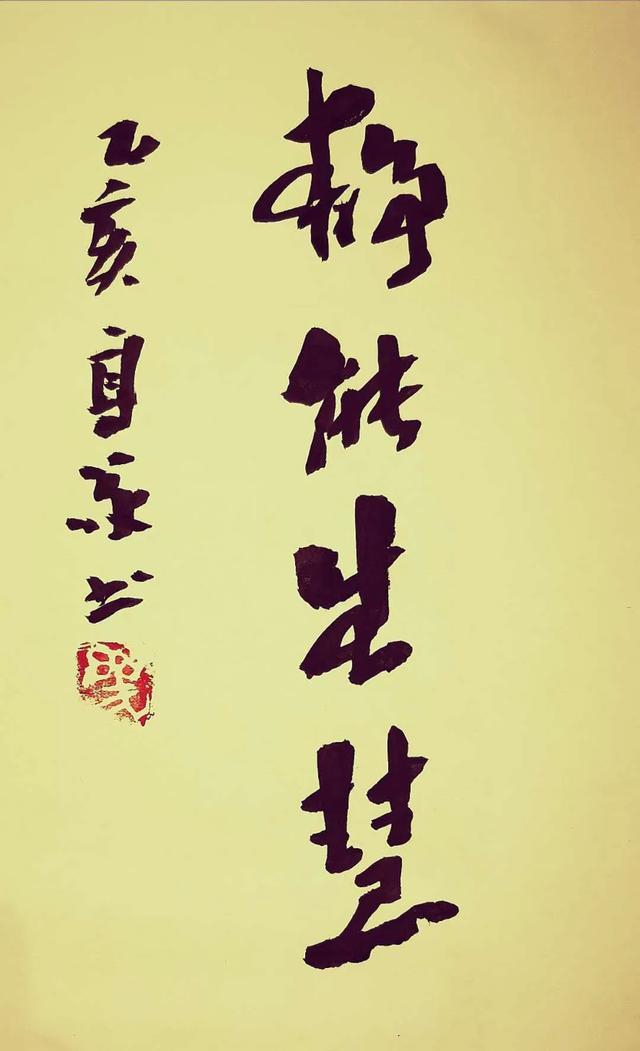 静能生慧
乙亥自京书